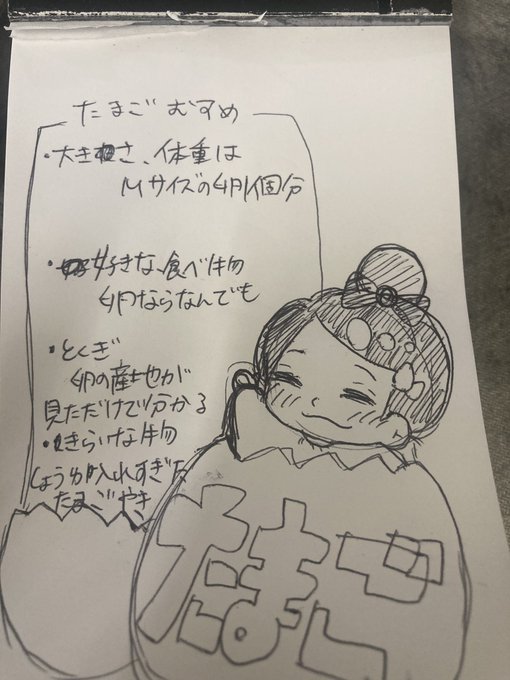 たまごむすめ
・大きさ、体重は
Mサイズの卵1個分
・好きな食べ物
卵ならなんでも
・とくぎ
卵の産地が
見ただけで分かる
・きらいな物
しょうゆ入れすぎた
たまごやき
たまご